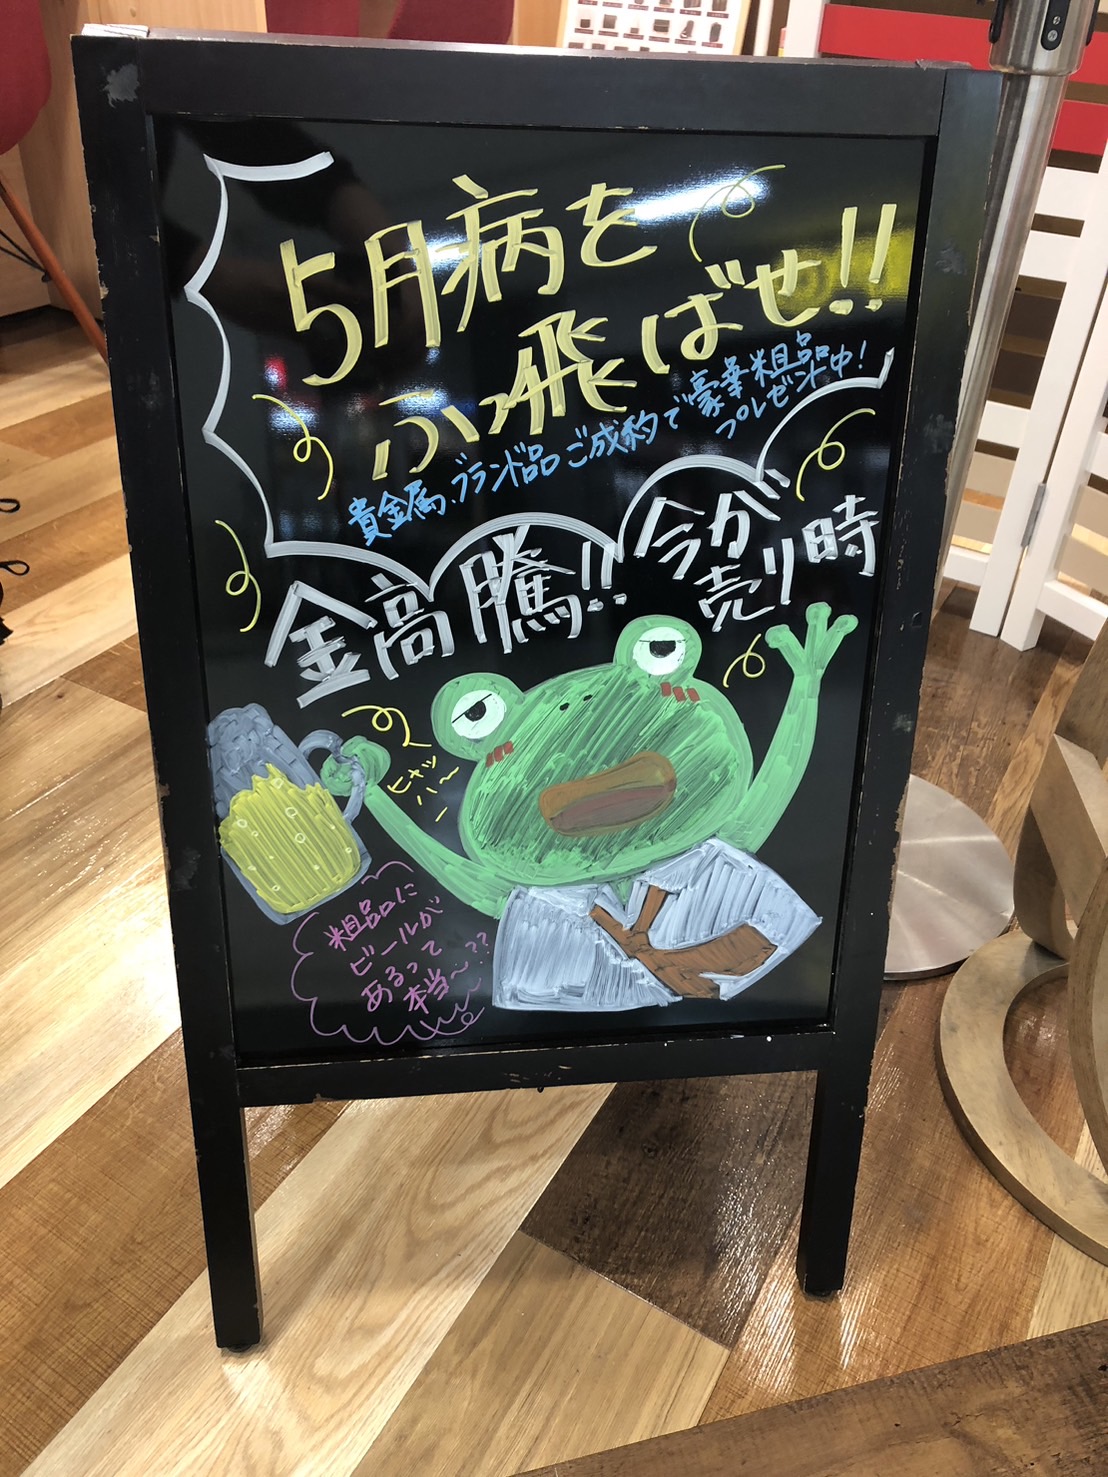 5月病を
ふっ飛ばせ!!
貴金属、ブランド品ご成約で豪華粗品
プレゼント中!
金高騰!! 今が
売り時
ヒャッ
ハ〜
ー
粗品に
ビールが
あるって
本当〜??